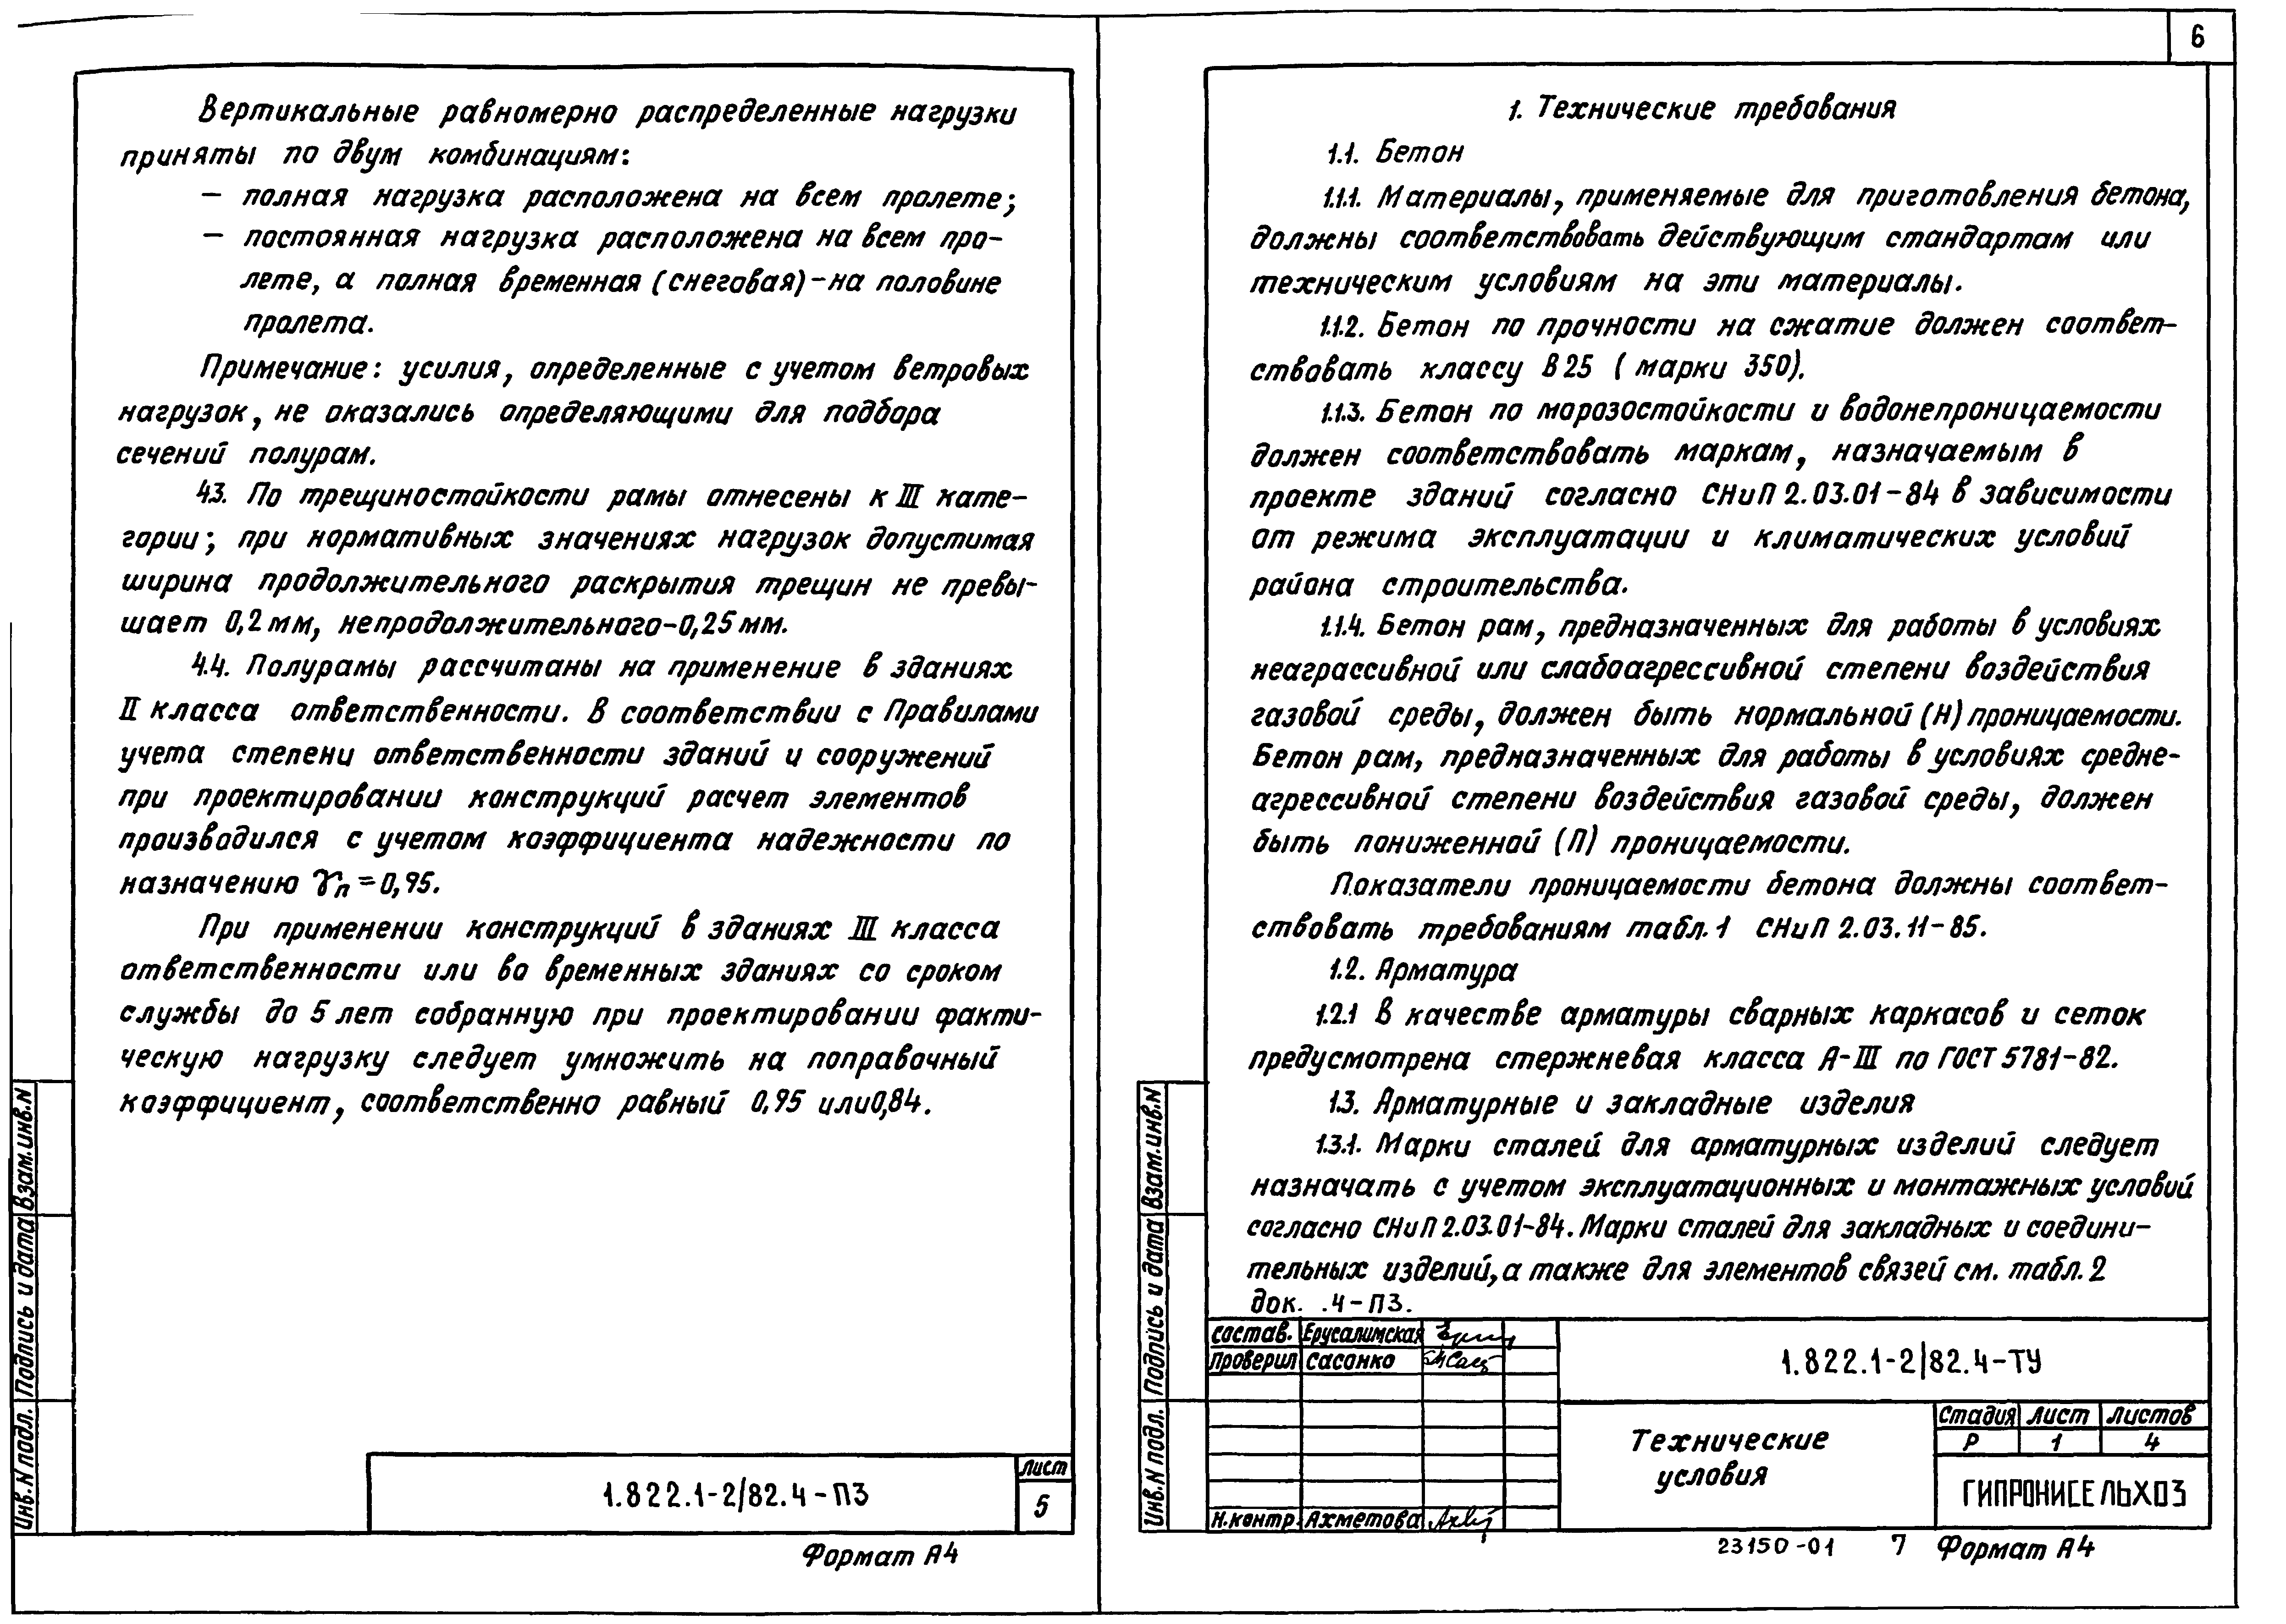 Вертикальные равномерно распределенные нагрузки
приняты по двум комбинациям:
— полная нагрузка расположена на всем пролете;
— постоянная нагрузка расположена на всем про-
лете, а полная временная (снеговая)-на половине
пролета.
Примечание: усилия, определенные с учетом ветровых
нагрузок, не оказались определяющими для подбора
сечений полурам.
4.3. По трещиностойкости рамы отнесены к III кате-
гории; при нормативных значениях нагрузок допустимая
ширина продолжительного раскрытия трещин не превы-
шает 0,2 мм, непродолжительного-0,25 мм.
4.4. Полурамы рассчитаны на применение в зданиях
II класса ответственности. В соответствии с Правилами
учета степени ответственности зданий и сооружений
при проектировании конструкций расчет элементов
производился с учетом коэффициента надежности по
назначению γп=0,95.
При применении конструкций в зданиях III класса
ответственности или во временных зданиях со сроком
службы до 5 лет собранную при проектировании факти-
ческую нагрузку следует умножить на поправочный
коэффициент, соответственно равный 0,95 или 0,84.
Взам.инв.N
Подпись и дата
Инв.N подл.
1.822.1-2/82.4-ПЗ
лист
5
Формат А4
6
1. Технические требования
1.1. Бетон
1.1.1. Материалы, применяемые для приготовления бетона,
должны соответствовать действующим стандартам или
техническим условиям на эти материалы.
1.1.2. Бетон по прочности на сжатие должен соответ-
ствовать классу В25 (марки 350).
1.1.3. Бетон по морозостойкости и водонепроницаемости
должен соответствовать маркам, назначаемым в
проекте зданий согласно СНиП 2.03.01-84 в зависимости
от режима эксплуатации и климатических условий
района строительства.
1.1.4. Бетон рам, предназначенных для работы в условиях
неаграссивной или слабоагрессивной степени воздействия
газовой среды, должен быть нормальной (Н) проницаемости.
Бетон рам, предназначенных для работы в условиях средне-
агрессивной степени воздействия газовой среды, должен
быть пониженной (П) проницаемости.
Показатели проницаемости бетона должны соответ-
ствовать требованиям табл.1 СНиП 2.03.11-85.
1.2. Арматура
1.2.1 В качестве арматуры сварных каркасов и сеток
предусмотрена стержневая класса А-III по ГОСТ 5781-82.
1.3. Арматурные и закладные изделия
1.3.1. Марки сталей для арматурных изделий следует
назначать с учетом эксплуатационных и монтажных условий
согласно СНиП 2.03.01-84. Марки сталей для закладных и соедини-
тельных изделий, а также для элементов связей см. табл.2
док. .4-ПЗ.
Взам.инв.N
Подпись и дата
Инв.N подл.
состав. Ерусалимская
Проверил Сасонко
Н.контр. Ахметова
1.822.1-2/82.4-ТУ
Технические
условия
Стадия Лист Листов
Р 1 4
ГИПРОНИСЕЛЬХОЗ
23150-01 7 Формат А4